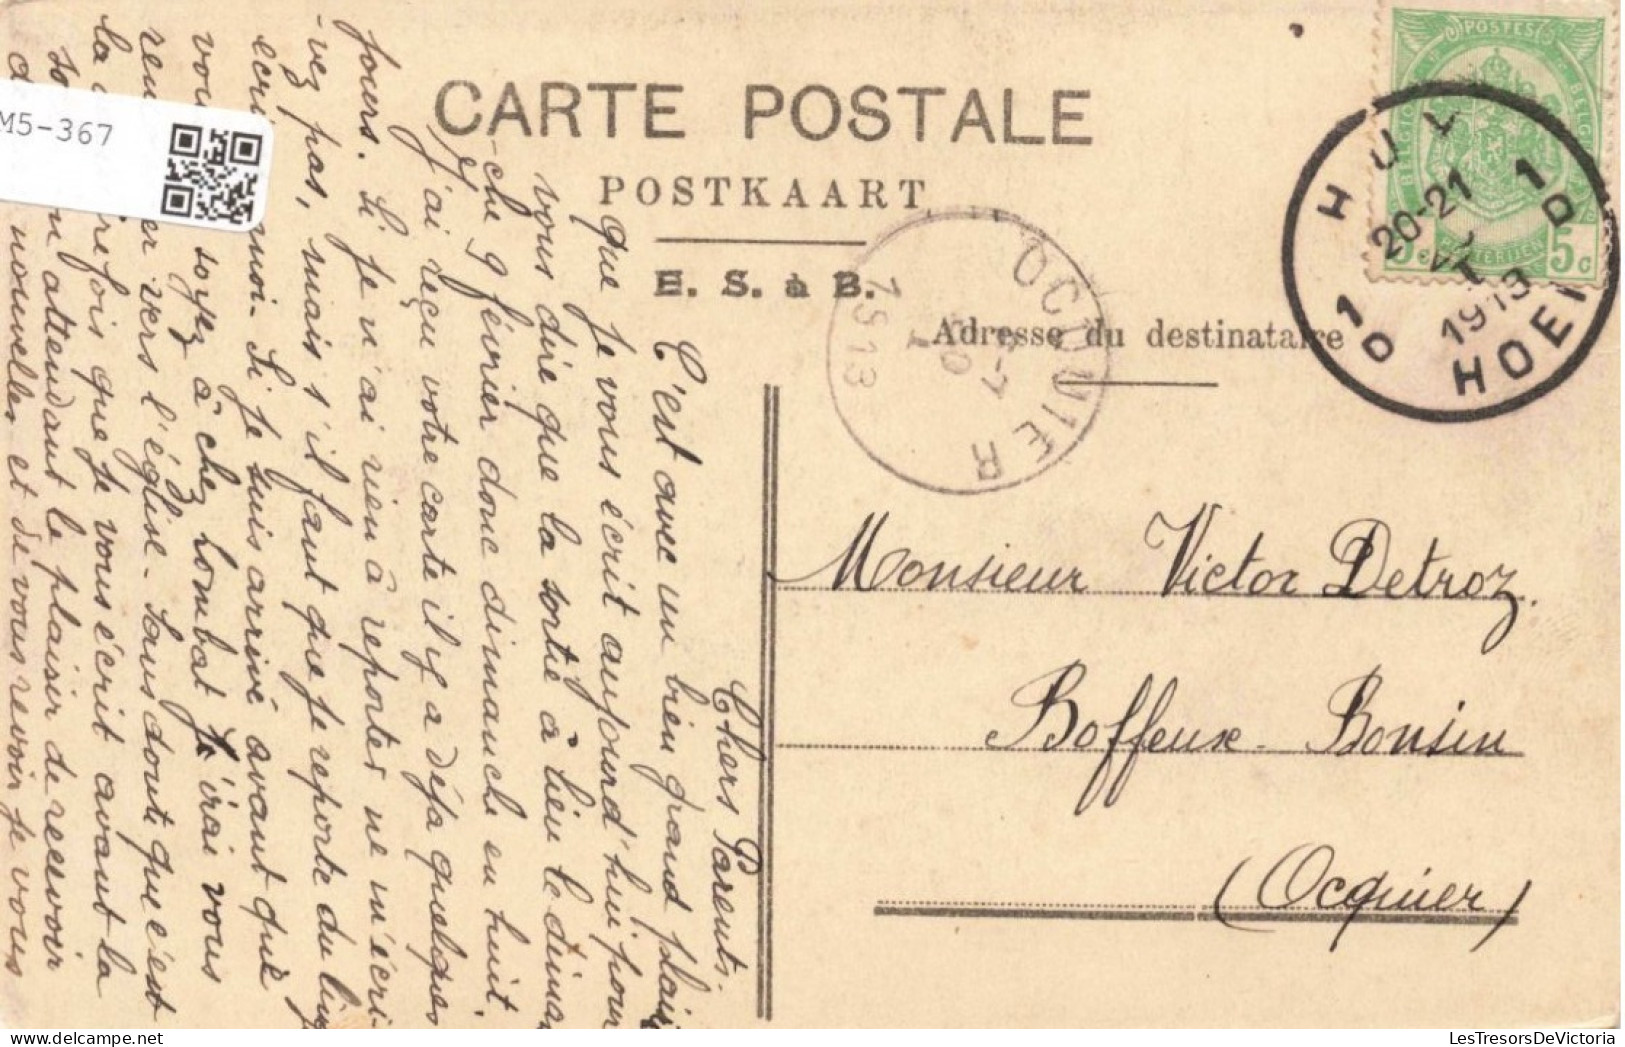 CARTE POSTALE
POSTKAART
E. S. à B.
Adresse du destinataire
POSTES
BELGIQUE
BELGIË
POSTERIJEN
5c 5c
HUY
1D 1D
20-21
1913
HOEI
OCQUIER
6-7
10
1913
M5-367
Monsieur Victor Detroz.
Boffeuse - Bonsin
(Ocquier)
Chers Parents.
C'est avec un bien grand plaisir
que je vous écrit aujourd'hui pour
vous dire que la sortie à lieu le diman
-che 9 février donc dimanche en huit.
J'ai reçu votre carte il y a déjà quelques
jours. Si je n'ai rien à reporter ne m'écri-
-vez pas, mais s'il faut que je reporte du linge
écri moi. Si je suis arrivé avant que
vous soyez à chez Lombat j'irai vous
ren er vers l'église. Sans doute que c'est
la irefois que je vous écrit avant la
so n attendant le plaisir de recevoir
d nouvelles et de vous revoir je vous
LesTresorsDeVictoria